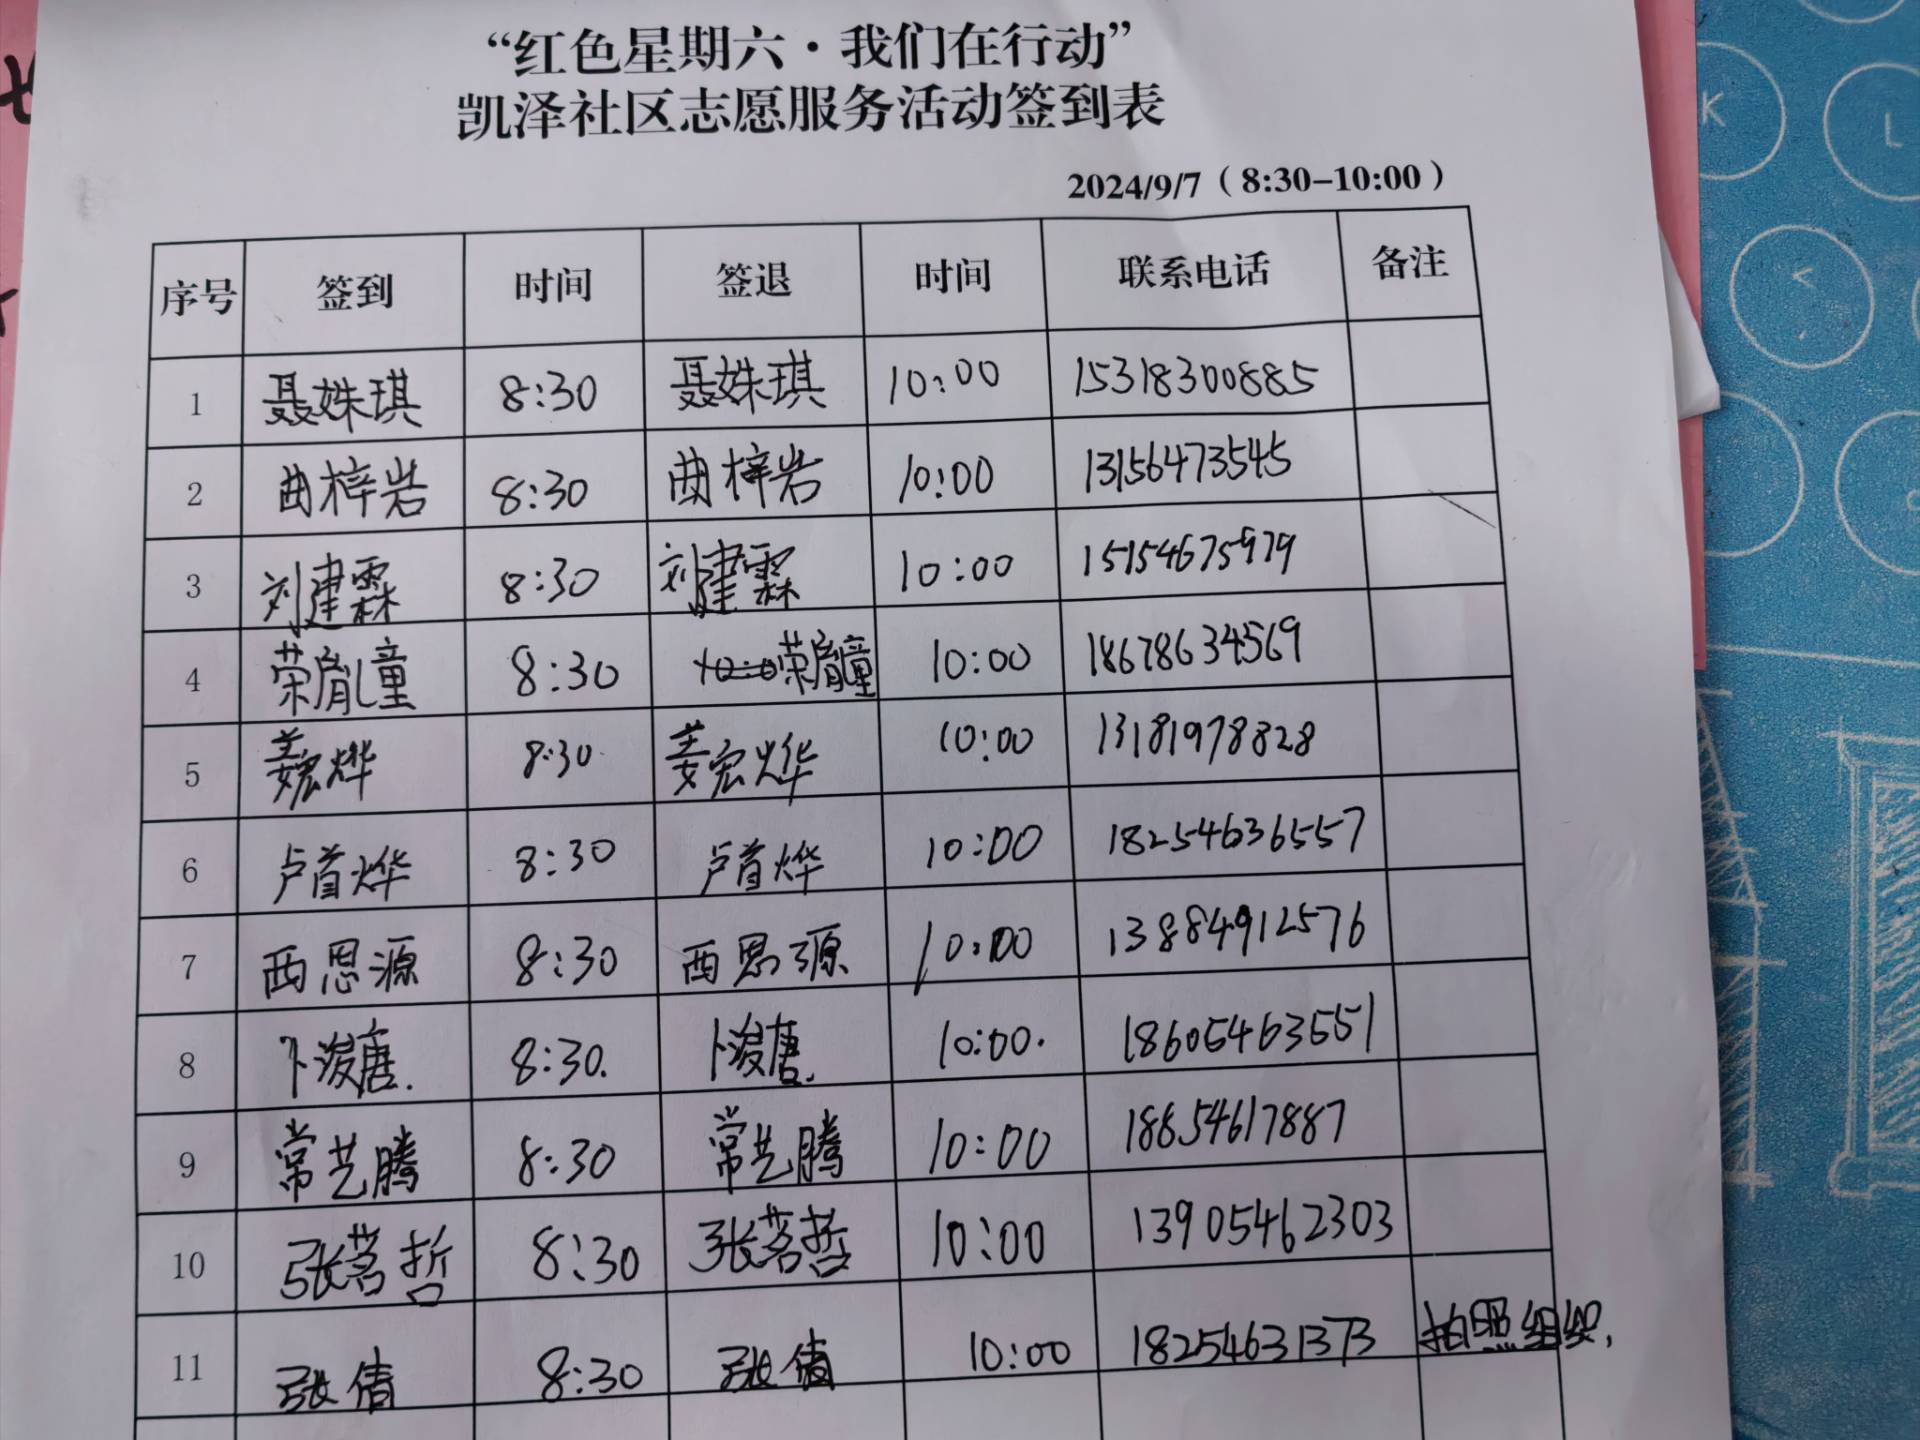 “红色星期六·我们在行动”
凯泽社区志愿服务活动签到表
2024/9/7（8:30-10:00）
序号 签到 时间 签退 时间 联系电话 备注
1 聂姝琪 8:30 聂姝琪 10:00 15318300885
2 曲梓岩 8:30 曲梓岩 10:00 13156473545
3 刘建霖 8:30 刘建霖 10:00 15154675979
4 荣胤童 8:30 荣胤童 10:00 18678634569
5 姜宏烨 8:30 姜宏烨 10:00 13181978828
6 卢首烨 8:30 卢首烨 10:00 18254636557
7 西思源 8:30 西思源 10:00 13884912576
8 卜浚唐. 8:30. 卜浚唐. 10:00. 18605463551
9 常艺腾 8:30 常艺腾 10:00 18854617887
10 张茗哲 8:30 张茗哲 10:00 13905462303
11 张倩 8:30 张倩 10:00 18254631373 拍照组织.
K
L
<